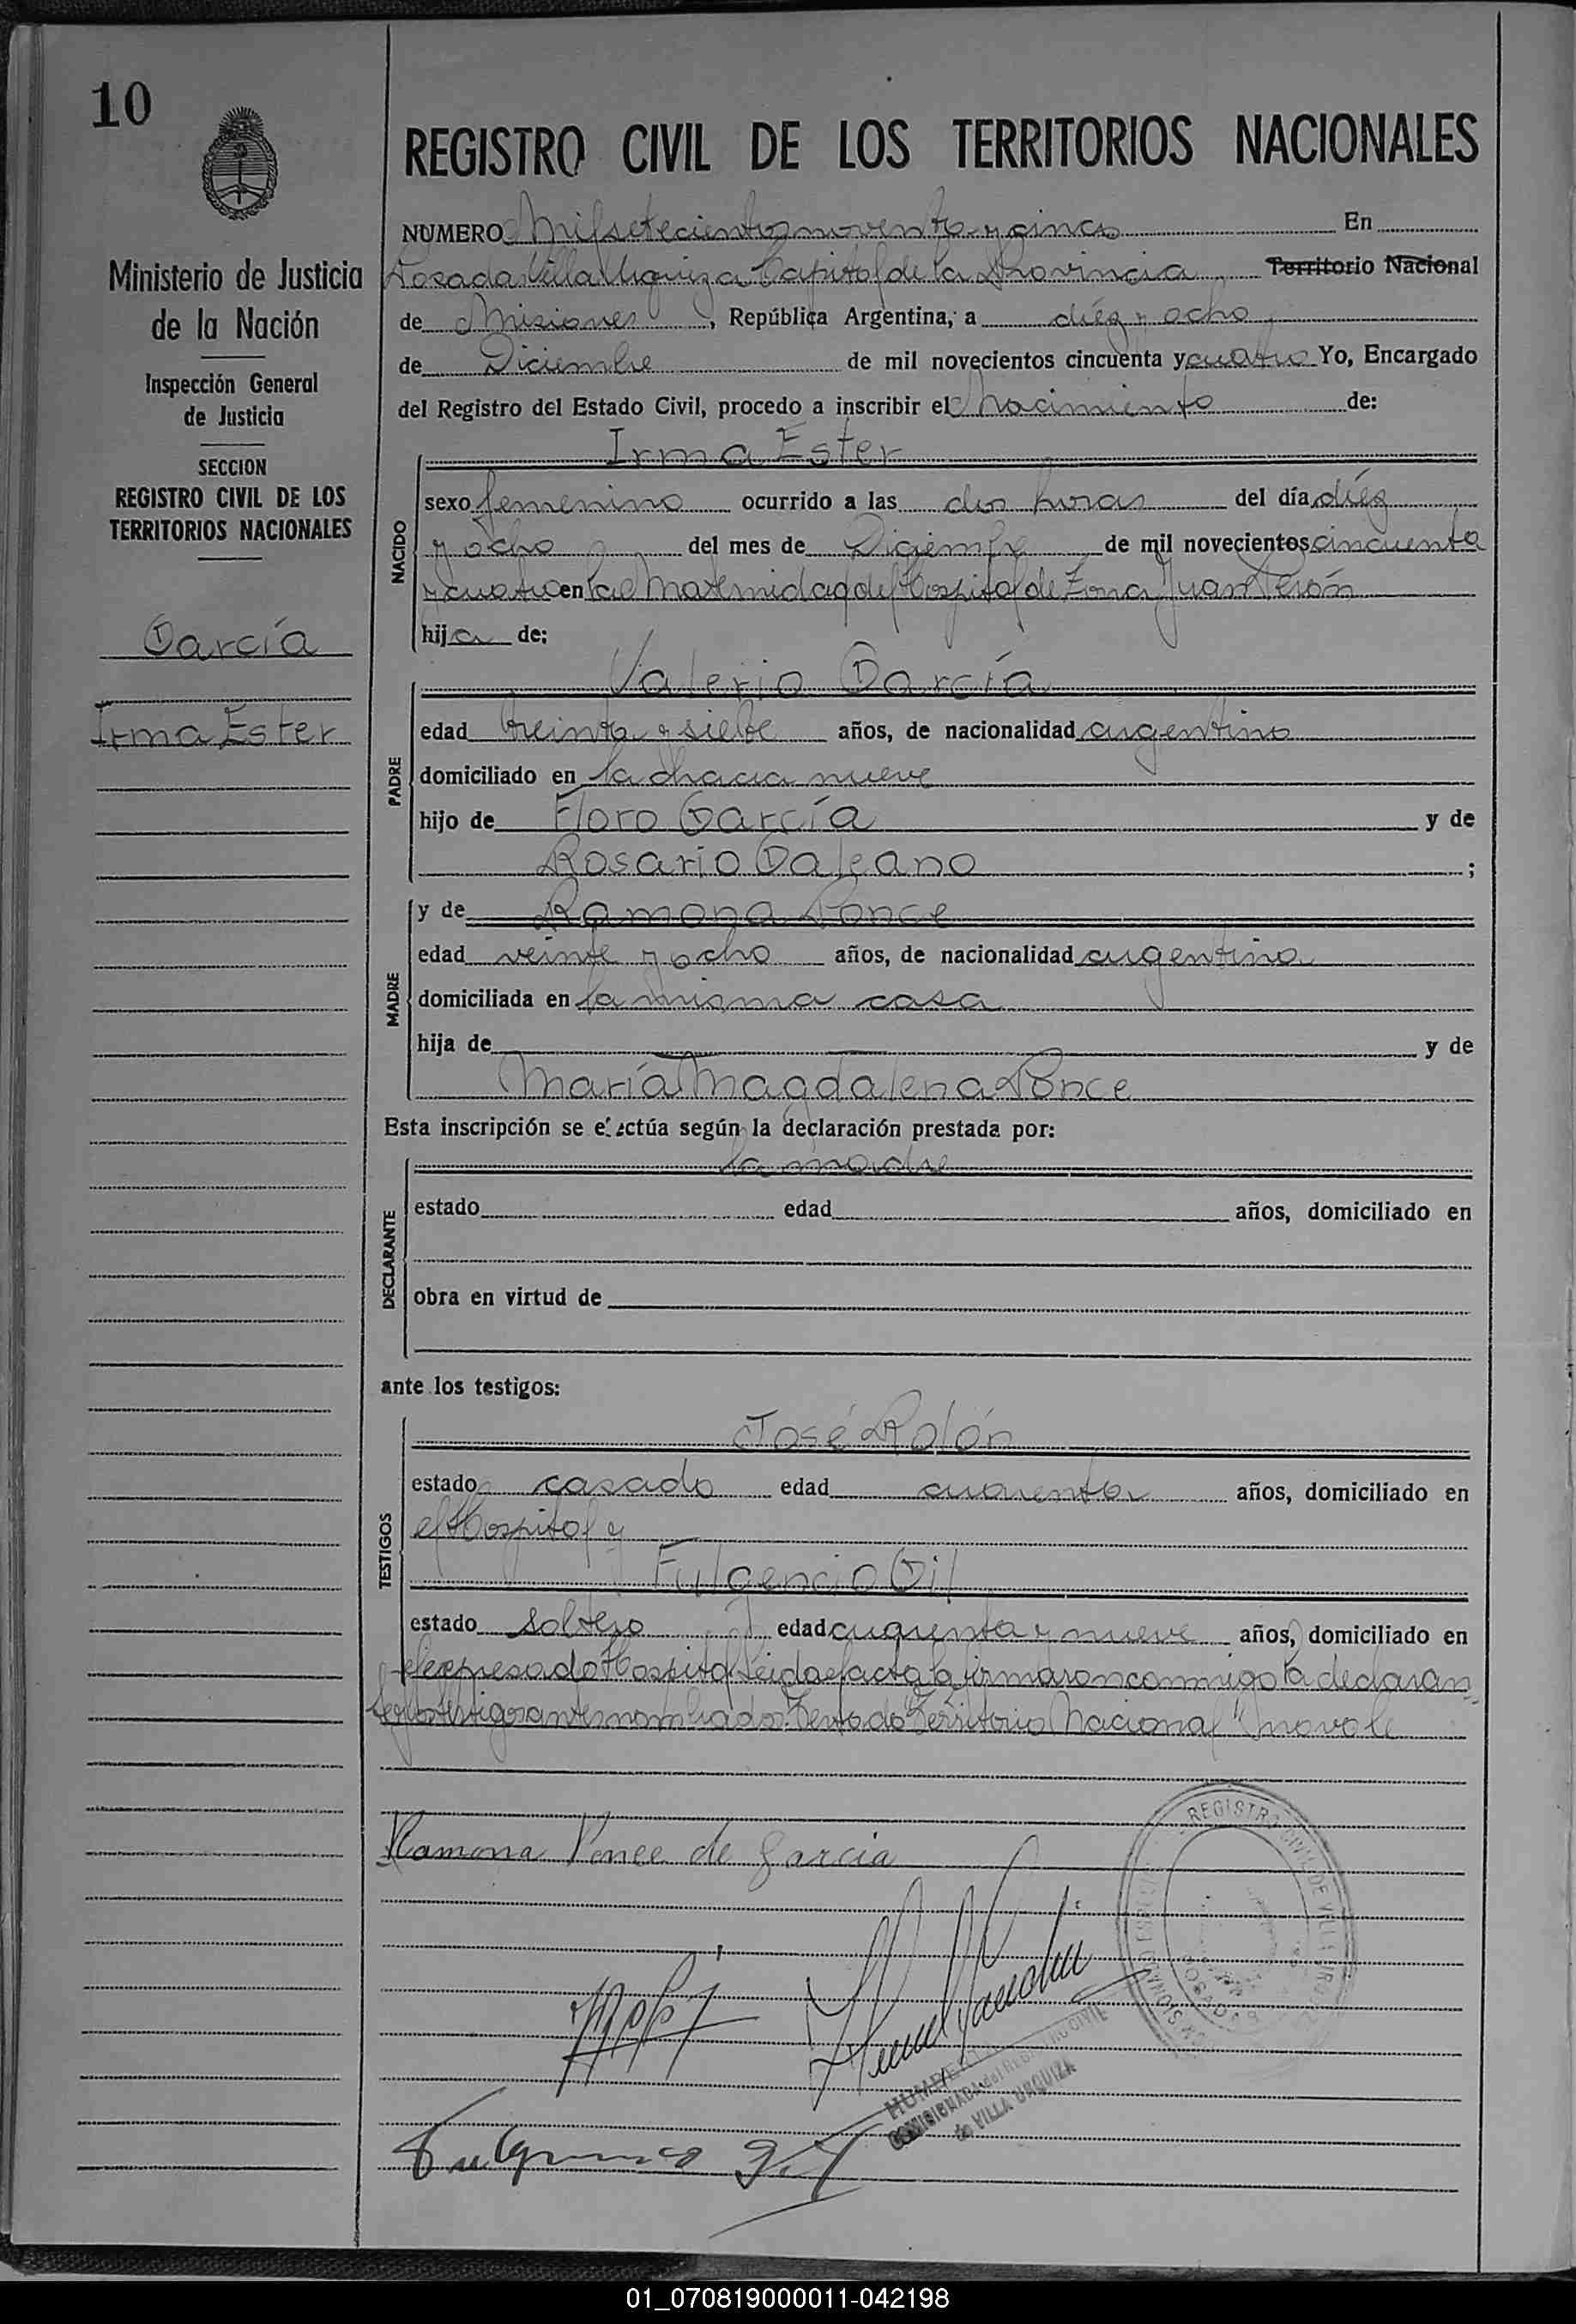 10
REGISTRO CIVIL DE LOS TERRITORIOS NACIONALES
Ministerio de Justicia
de la Nación
Inspección General
de Justicia
SECCION
REGISTRO CIVIL DE LOS
TERRITORIOS NACIONALES
García
Irma Ester
NUMERO Mil setecientos noventa y cinco En
Posadas Villa Urquiza Capital de la Provincia Territorio Nacional
de Misiones, República Argentina, a diéz y ocho
de Diciembre de mil novecientos cincuenta y cuatro Yo, Encargado
del Registro del Estado Civil, procedo a inscribir el Nacimiento de:
Irma Ester
NACIDO
sexo femenino ocurrido a las dos horas del día diéz
y ocho del mes de Diciembre de mil novecientos cincuenta
y cuatro en la Maternidad del Hospital de Zona Juan Perón
hija de:
Valerio García
PADRE
edad treinta y siete años, de nacionalidad argentino
domiciliado en la chacra nueve
hijo de Floro García y de
Rosario Galeano ;
MADRE
y de Ramona Ponce
edad veinte y ocho años, de nacionalidad argentina
domiciliada en la misma casa
hija de y de
María Magdalena Ponce
Esta inscripción se efectúa según la declaración prestada por:
la madre
DECLARANTE
estado edad años, domiciliado en
obra en virtud de
ante los testigos:
José Rolón
TESTIGOS
estado casado edad cuarenta años, domiciliado en
el Hospital y
Fulgencio Gil
estado soltero edad cuarenta y nueve años, domiciliado en
el expresado Hospital Leida el acta la firmaron conmigo la declaran=
te y los testigos antes nombrados. Testado "Territorio Nacional" no vale
Ramona Ponce de Garcia
REGISTRO CIVIL DE VILLA URQUIZA
POSADAS
MISIONES
REGISTRO CIVIL
de VILLA URQUIZA
Fulgencio Gil
01_070819000011-042198